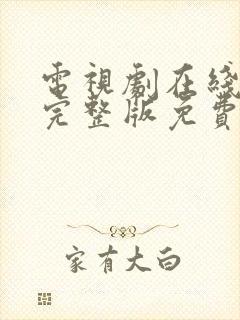 電視劇在綫
完整版免費
家有大白